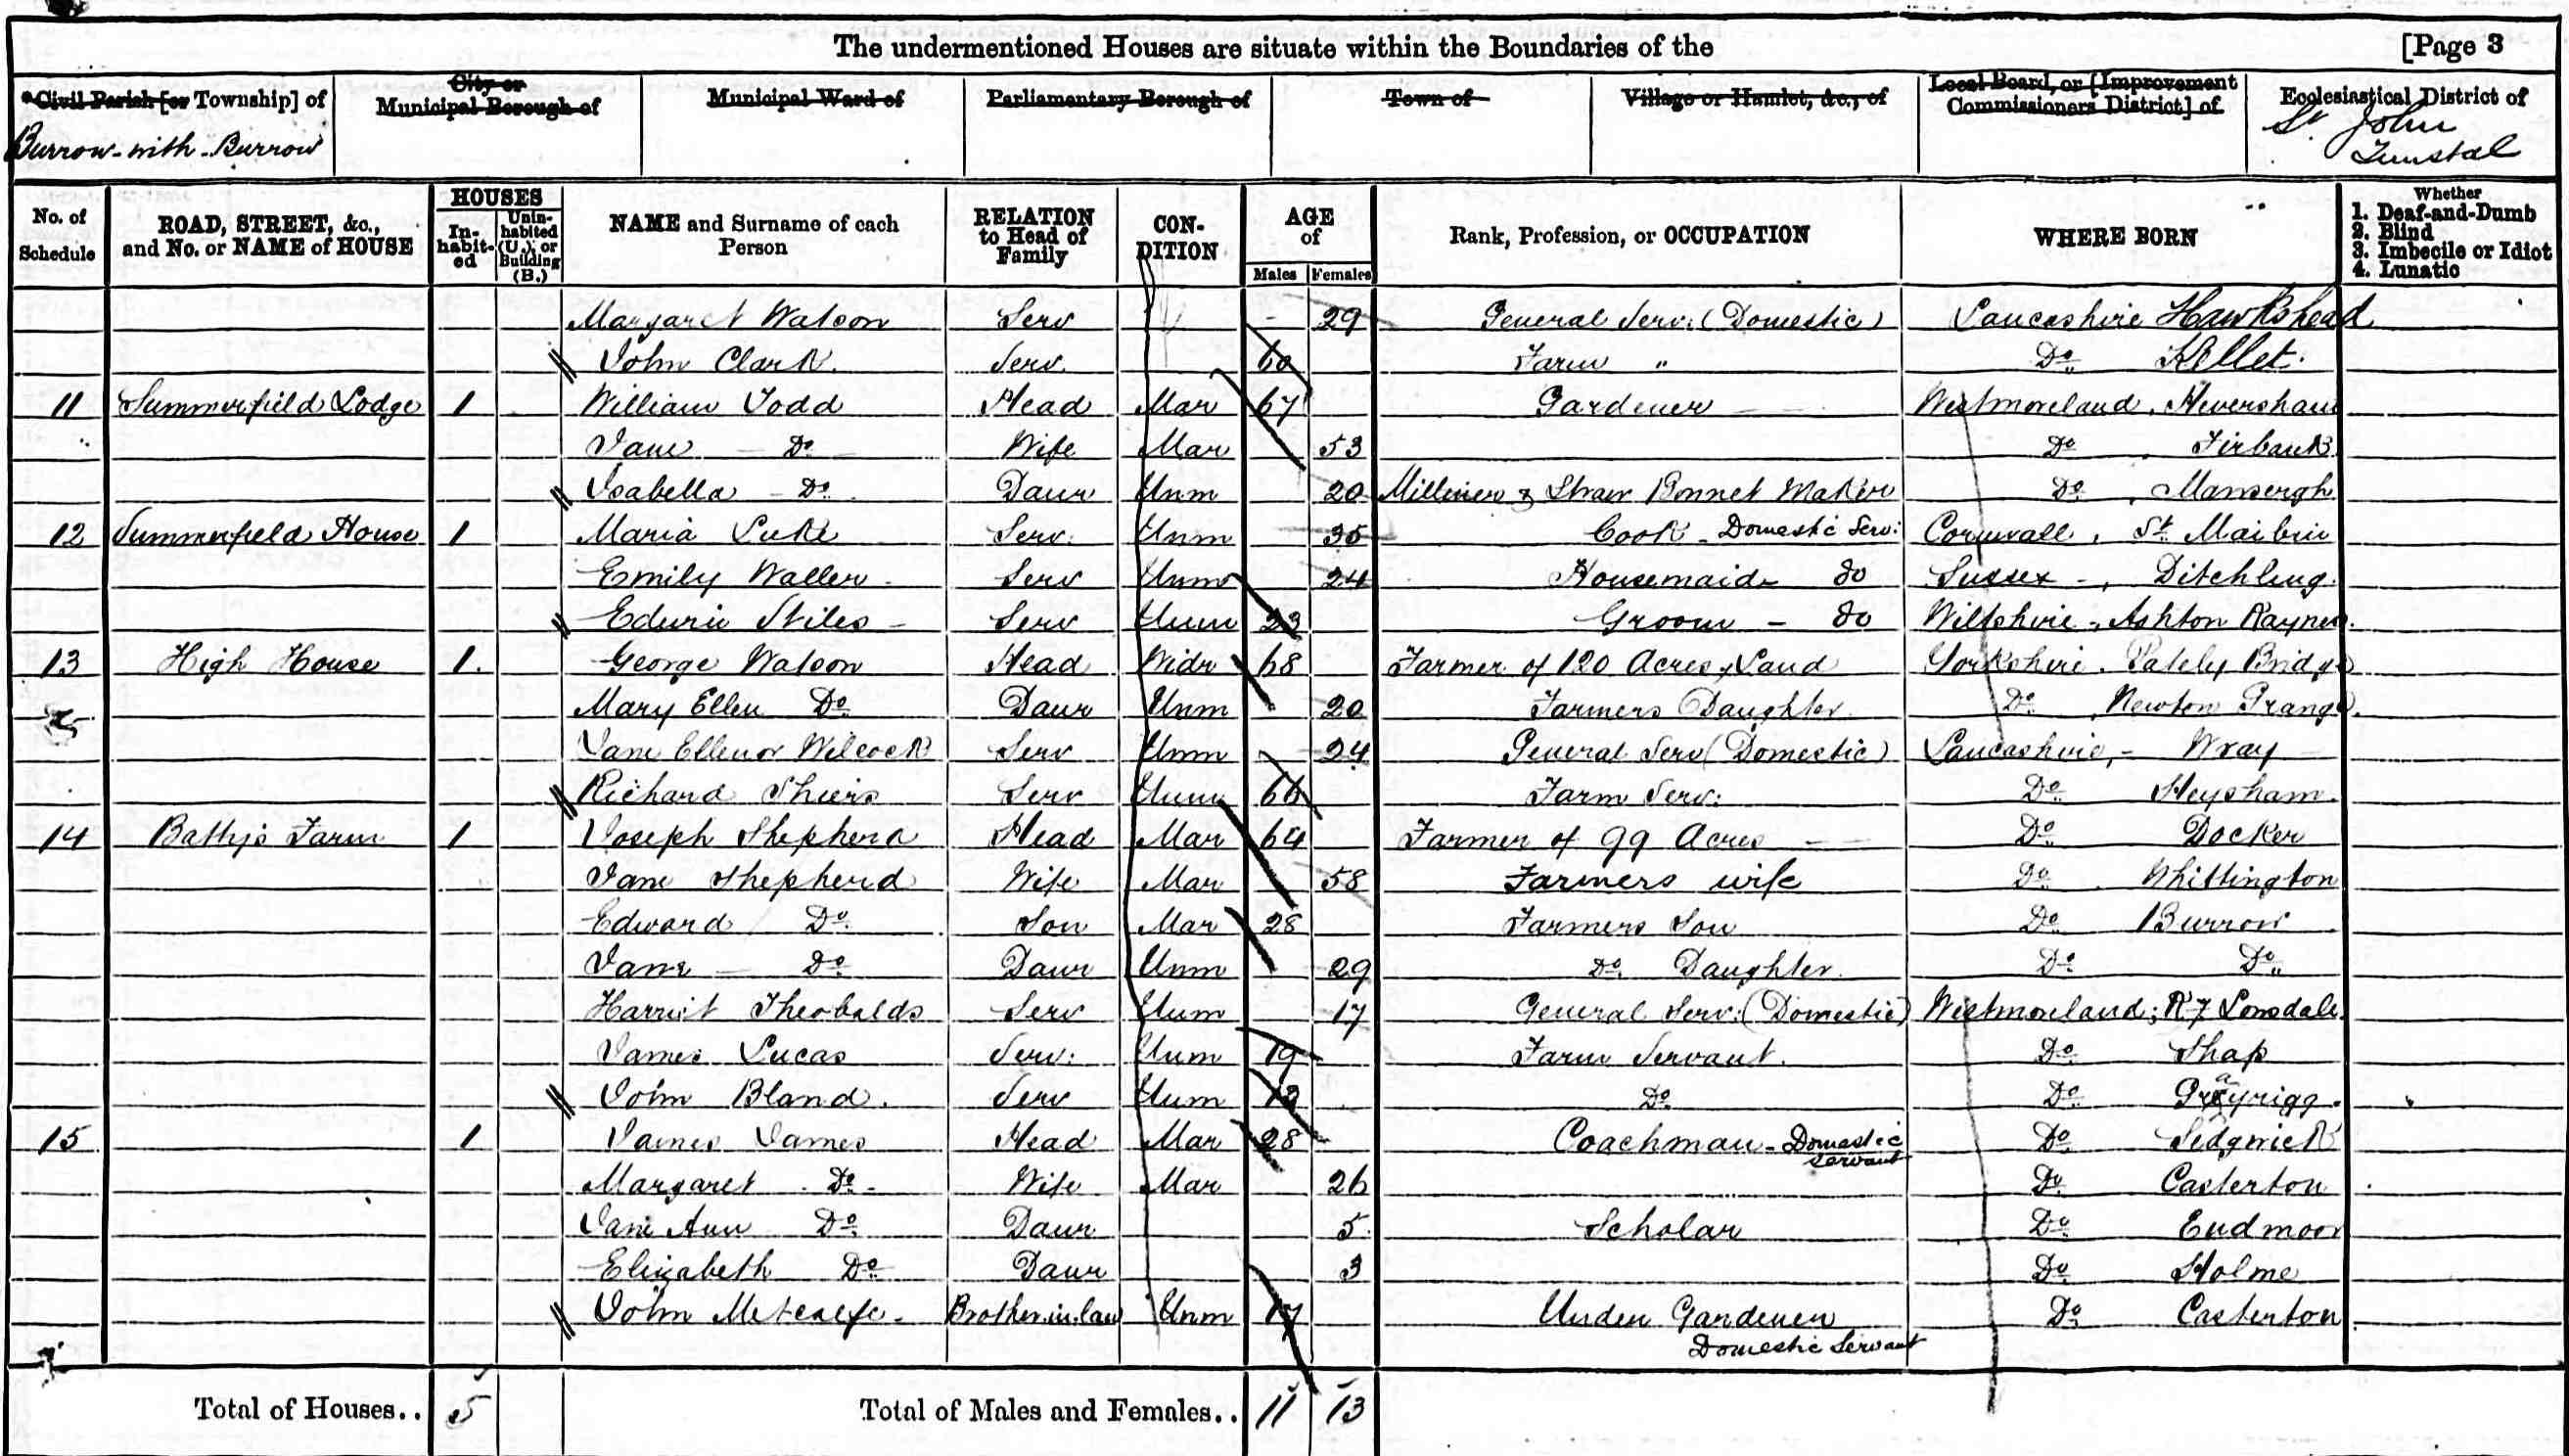 The undermentioned Houses are situate within the Boundaries of the [Page 3
Civil Parish [or Township] of City or Municipal Borough of Municipal Ward of Parliamentary Borough of Town of Village or Hamlet, &c., of Local Board, or [Improvement Commissioners District] of Ecclesiastical District of
Burrow-with-Burrow St John Tunstal
No. of Schedule ROAD, STREET, &c., and No. or NAME of HOUSE HOUSES Inhabited Uninhabited (U.), or Building (B.) NAME and Surname of each Person RELATION to Head of Family CONDITION AGE of Males Females Rank, Profession, or OCCUPATION WHERE BORN Whether 1. Deaf-and-Dumb 2. Blind 3. Imbecile or Idiot 4. Lunatic
Margaret Watson Serv 29 General Serv: (Domestic) Lancashire Hawkshead
John Clark Serv 60 Farm " Do Kellet
11 Summerfield Lodge 1 William Todd Head Mar 67 Gardener Westmoreland, Heversham
Jane Do Wife Mar 53 Do Firbank
Isabella Do Daur Unm 20 Milliner & Straw Bonnet Maker Do Mansergh
12 Summerfield House 1 Maria Luke Serv: Unm 35 Cook - Domestic Serv: Cornwall, St
Emily Waller Serv Unm 24 Housemaid do Sussex Ditchling
Edwin Stiles Serv Unm 23 Groom do Wiltshire, Ashton Kaynes
13 High House 1 George Watson Head Widr 68 Farmer of 120 Acres Land Yorkshire. Pately Bridge
Mary Ellen Do Daur Unm 20 Farmers Daughter Do Newton Grange
Jane Ellenor Wilcock Serv Unm 24 General Serv (Domestic) Lancashire, Wray
Richard Serv Unm 66 Farm Serv: Do Heysham
14 Farm 1 Joseph Shepherd Head Mar 64 Farmer of 99 Acres Do Docker
Jane Shepherd Wife Mar 58 Farmers wife Do Whittington
Edward Do Son Mar 28 Farmers Son Do Burrow
Jane Do Daur Unm 29 Do Daughter Do Do
Harriet Theobalds Serv Unm 17 General Serv: (Domestic) Westmoreland; Lonsdale
James Lucas Serv: Unm 19 Farm Servant. Do Shap
John Bland. Serv Unm Do Do Grayrigg
15 1 James James Head Mar 28 Coachman - Domestic Servant Do Sedgwick
Margaret Do Wife Mar 26 Do Casterton
Jane Ann Do Daur 5 Scholar Do Endmoor
Elizabeth Do Daur 3 Do Holme
John Metcalfe Brother-in-law Unm 17 Under Gardener Do Casterton
Domestic Servant
Total of Houses.. 5 Total of Males and Females.. 11 13